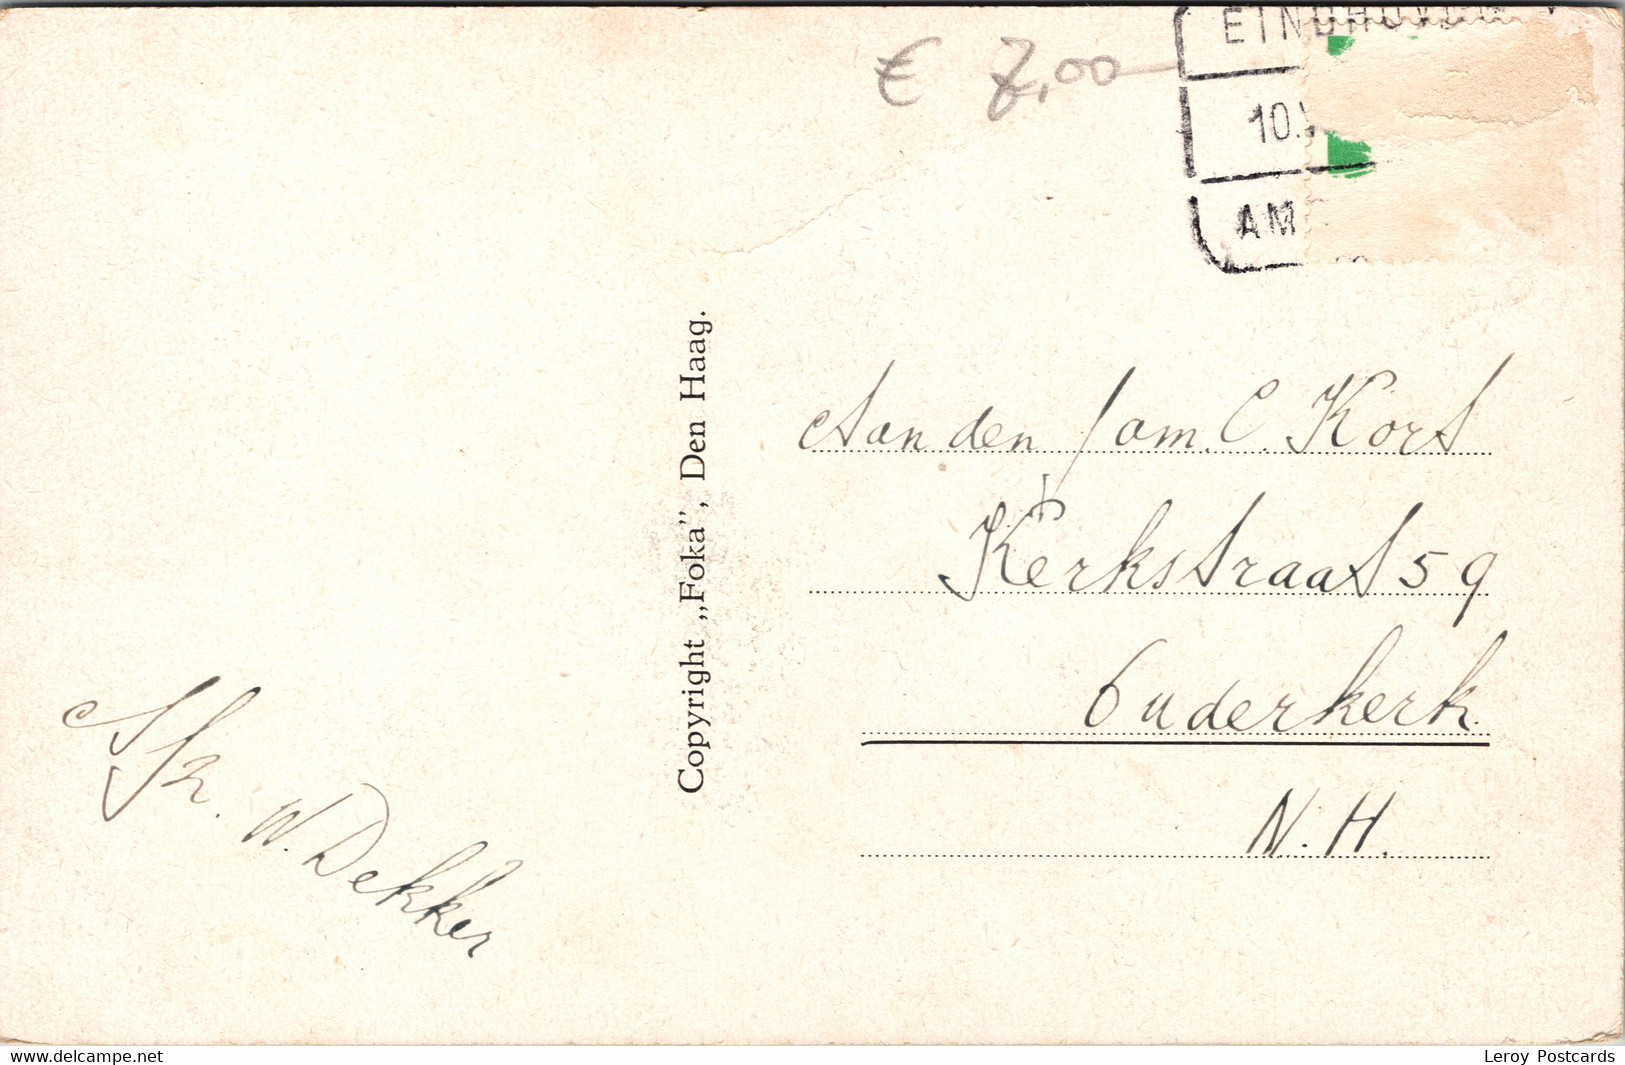 € 7,00
EINDHOVEN
10.V
AM
Copyright „Foka”, Den Haag.
Aan den fam. C. Kors
Kerkstraat 59
Ouderkerk.
N.H.
Afz. W. Dekker
delcampe.net
Leroy Postcards